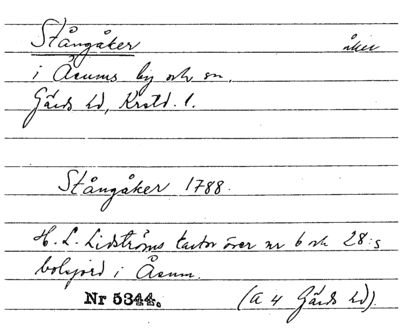 Stångåker åker
i Åsums by och sn,
Gärds hd, Krstd. l.
Stångåker 1788.
H. L. Lidströms karta över nr 6 och 28:s
bolsjord i Åsum.
Nr 5344. (A 4 Gärds hd).